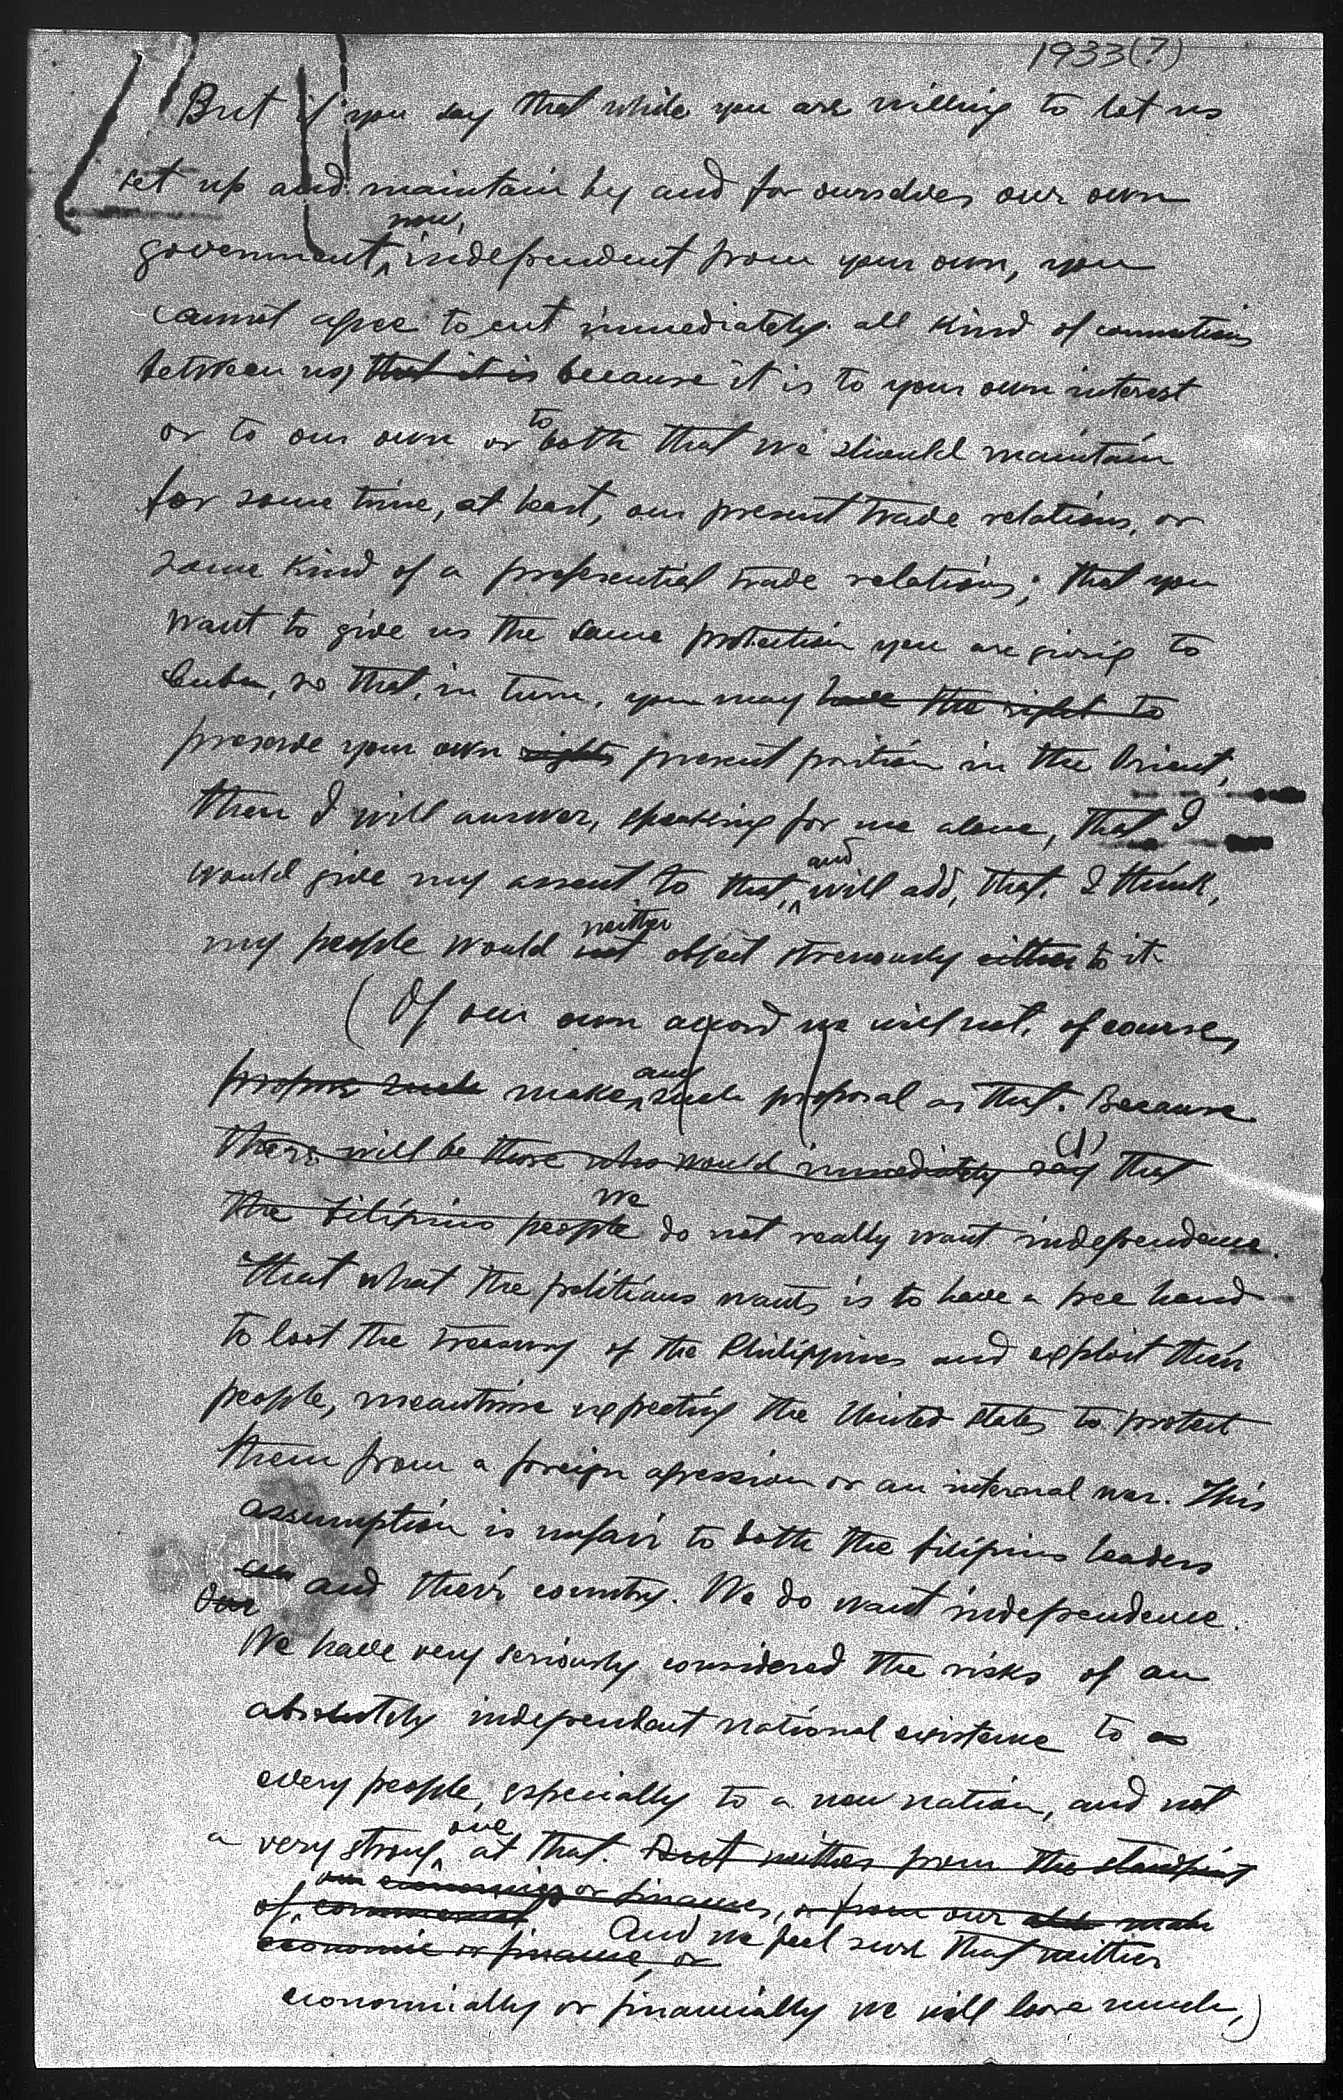 1933(?)
But if you say that while you are willing to let us
set up and maintain by and for ourselves our own
now,
government, independent from your own, you
cannot agree to cut immediately all kind of connections
between us, that it is because it is to your own interest
to
or to our own or both that we should maintain
for some time, at least, our present trade relations, or
some kind of a preferential trade relations; that you
want to give us the same protection you are giving to
Cuba, so that, in turn, you may have the right to
preserve your own rights present position in the Orient,
then I will answer, speaking for me alone, that I
and
would give my assent to that, will add, that, I think,
neither
my people would not object strenously either to it.
(Of our own accord we will not, of course,
any
propose such make such proposal as that. Because
(1)
there will be those who would immediately say that
we
the Filipino people do not really want independence.
That what the politians wants is to have a free hand
to loot the treasury of the Philippines and exploit their
people, meantime expecting the United States to protect
them from a foreign agression or an internal war. This
assumption is unfair to both the Filipino leaders
Our and their country. We do want independence.
We have very seriously considered the risks of an
absolutely independent national existence to a
every people, especially to a new nation, and not
one
a very strong at that. But neither from the standpoint
our economics or finances, or from our
of commercial
And we feel sure that neither
economic or finance, or
economically or financially we will loose much,)